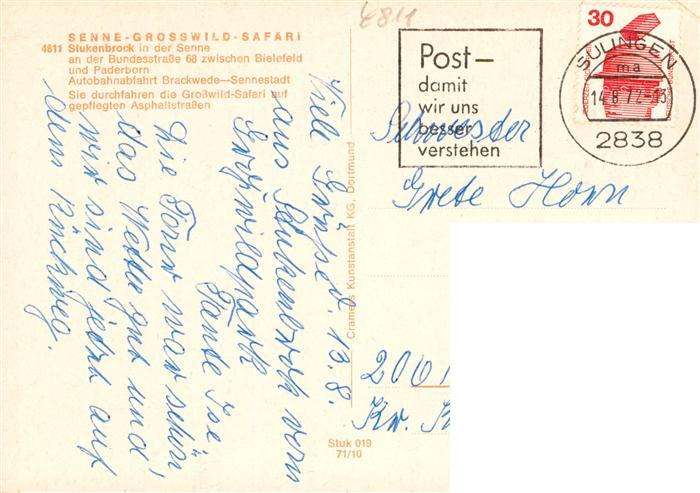 4811
SENNE-GROSSWILD-SAFARI
4811 Stukenbrock in der Senne
an der Bundesstraße 68 zwischen Bielefeld
und Paderborn
Autobahnabfahrt Brackwede—Sennestadt
Sie durchfahren die Großwild-Safari auf
gepflegten Asphaltstraßen
Viele Grüße d. 13.8.
aus Stukenbrock vom
Großwildpark
Tante Ise
Die Tour war schön
das Wetter gut und
wir sind jetzt auf
dem Rückweg.
Cramers Kunstanstalt KG, Dortmund
Stuk 019
71/10
Post—
damit
wir uns
besser
verstehen
30
SULINGEN
ma
14.8.72-13
2838
Schwester
Grete Horn
206
Kr.